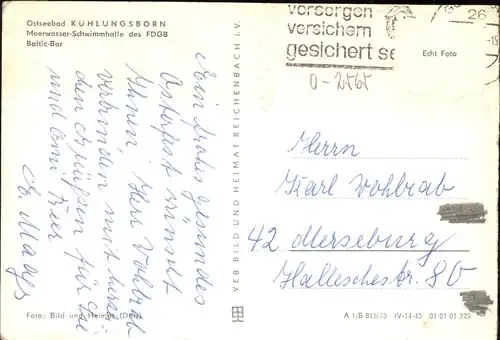 Ostseebad KÜHLUNGSBORN
Meerwasser-Schwimmhalle des FDGB
Baltic-Bar
vorsorgen
versichern
gesichert se
26
Echt Foto
0-2565
Ein frohes gesundes
Osterfest wünscht
Ihnen Herr Wohlrab
verbunden mit herzl.
den Grüßen für Sie
und
VEB BILD UND HEIMAT REICHENBACH I. V.
Herrn
Karl Wohlrab
42 Merseburg
Hallesche str. 80
Foto: Bild und Heimat
A 1/B 815/73 IV-14-45 01 01 01 325